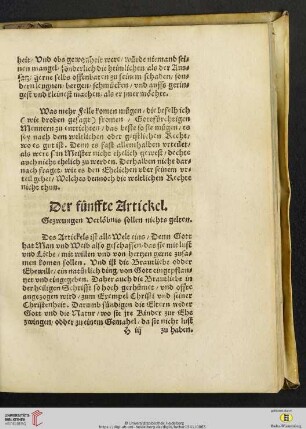 heit/ Und obs gewonheit were/ würde niemand sei-
nen mangel/ sonderlich die heimlichen als der Aus-
satz/ gerne selbs offenbaren zu seinem schaden/ son-
dern leugnen/ bergen/ schmücken/ vnd auffs gerin-
gest vnd kleinest machen/ als er jmer möchte.
Was mehr Felle komen mügen/ die befelh ich
(wie droben gesagt) fromen/ Gottfürchtigen
Mennern zu entrichten/ das beste so sie mügen/ es
sey nach dem weltlichen odder geistlichen Recht/
wo es gut ist. Denn es fast allenthalben vrteilet/
als were Meister nicht ehelich gewest/ dechte
auch nicht ehelich zu werden. Derhalben nicht dar-
nach fraget/ wie es den Ehelichen vber seinem vr-
teil gehet/ Welches dennoch die weltlichen Rechte
nicht thun.
Der fünffte Artickel.
Gezwungen Verlöbnis sollen nichts gelten.
Des Artickels ist alle Welt eins/ Denn Gott
hat Man vnd Weib also geschaffen/ das sie mit lust
vnd Liebe/ mit willen vnd von hertzen gerne zusa-
men komen sollen. Und ist die Brautliebe odder
Ehewille/ ein natürlich ding/ von Gott eingepflan-
tzet vnd eingegeben. Daher auch die Brautliebe in
der heiligen Schrifft so hoch gerhümet/ vnd offte
angezogen wird/ zum Exempel Christi vnd seiner
Christenheit. Darumb sündigen die Eltern wider
Gott vnd die Natur/ wo sie jre Kinder zur Ehe
zwingen/ odder zu einem Gemahel/ da sie nicht lust
H iij zu haben.
UNIVERSITÄTS-
BIBLIOTHEK
HEIDELBERG